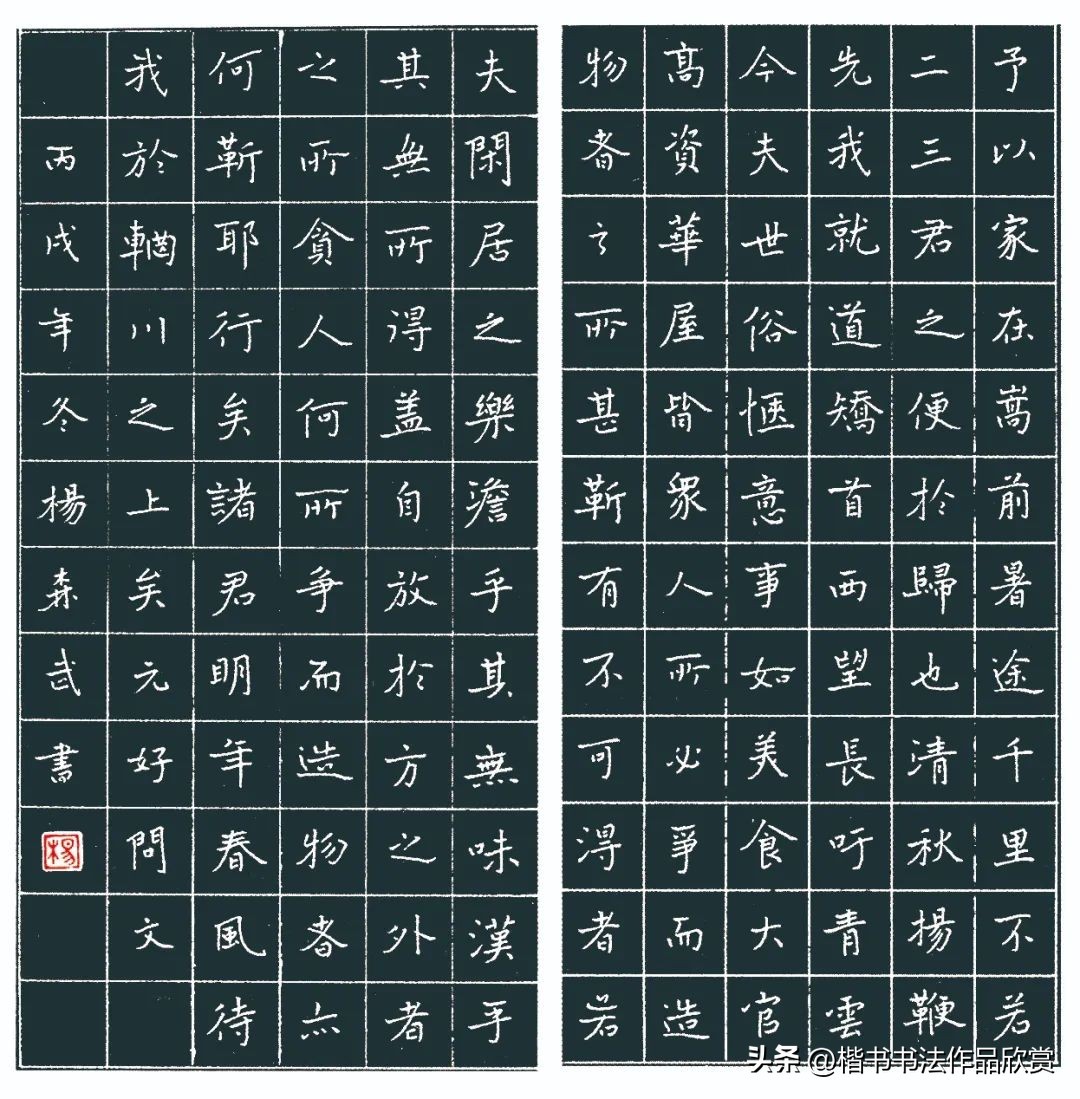 予以家在嵩前暑途千里不若
二三君之便於歸也清秋揚鞭
先我就道矯首西望長吁青雲
今夫世俗愜意事如美食大官
高資華屋皆眾人所必爭而造
物者之所甚靳有不可得者若
夫閑居之樂澹乎其無味漢乎
其無所得蓋自放於方之外者
之所貪人何所爭而造物者亦
何靳耶行矣諸君明年春風待
我於輞川之上矣元好問文
丙戌年冬楊森武書
楊
头条 @楷书书法作品欣赏